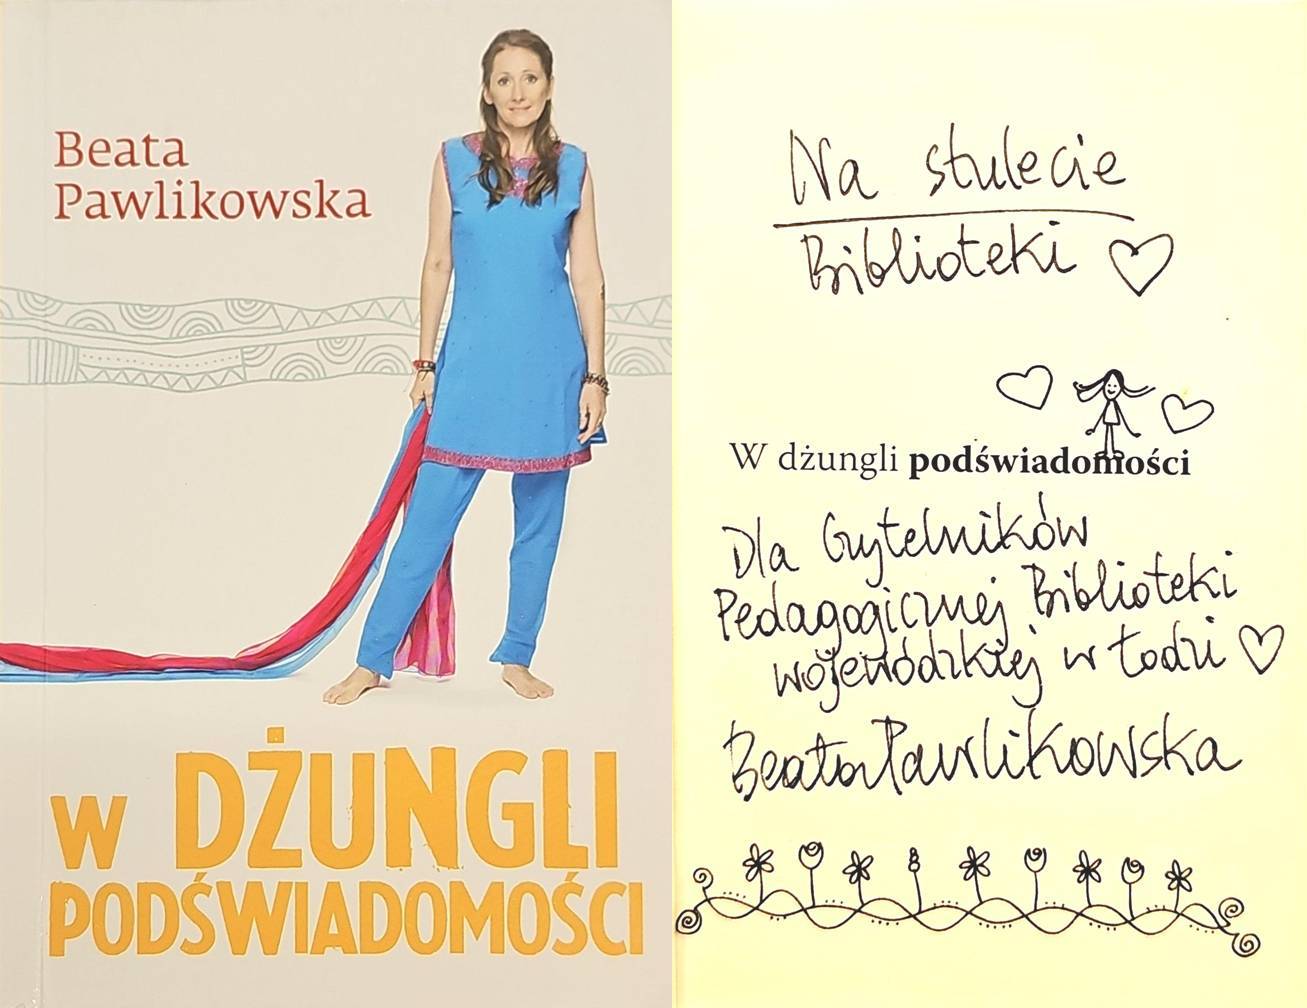 Beata
Pawlikowska
W DŻUNGLI
PODŚWIADOMOŚCI
Na stulecie
Biblioteki
W dżungli podświadomości
Dla Czytelników
Pedagogicznej Biblioteki
wojewódzkiej w Łodzi
Beata Pawlikowska